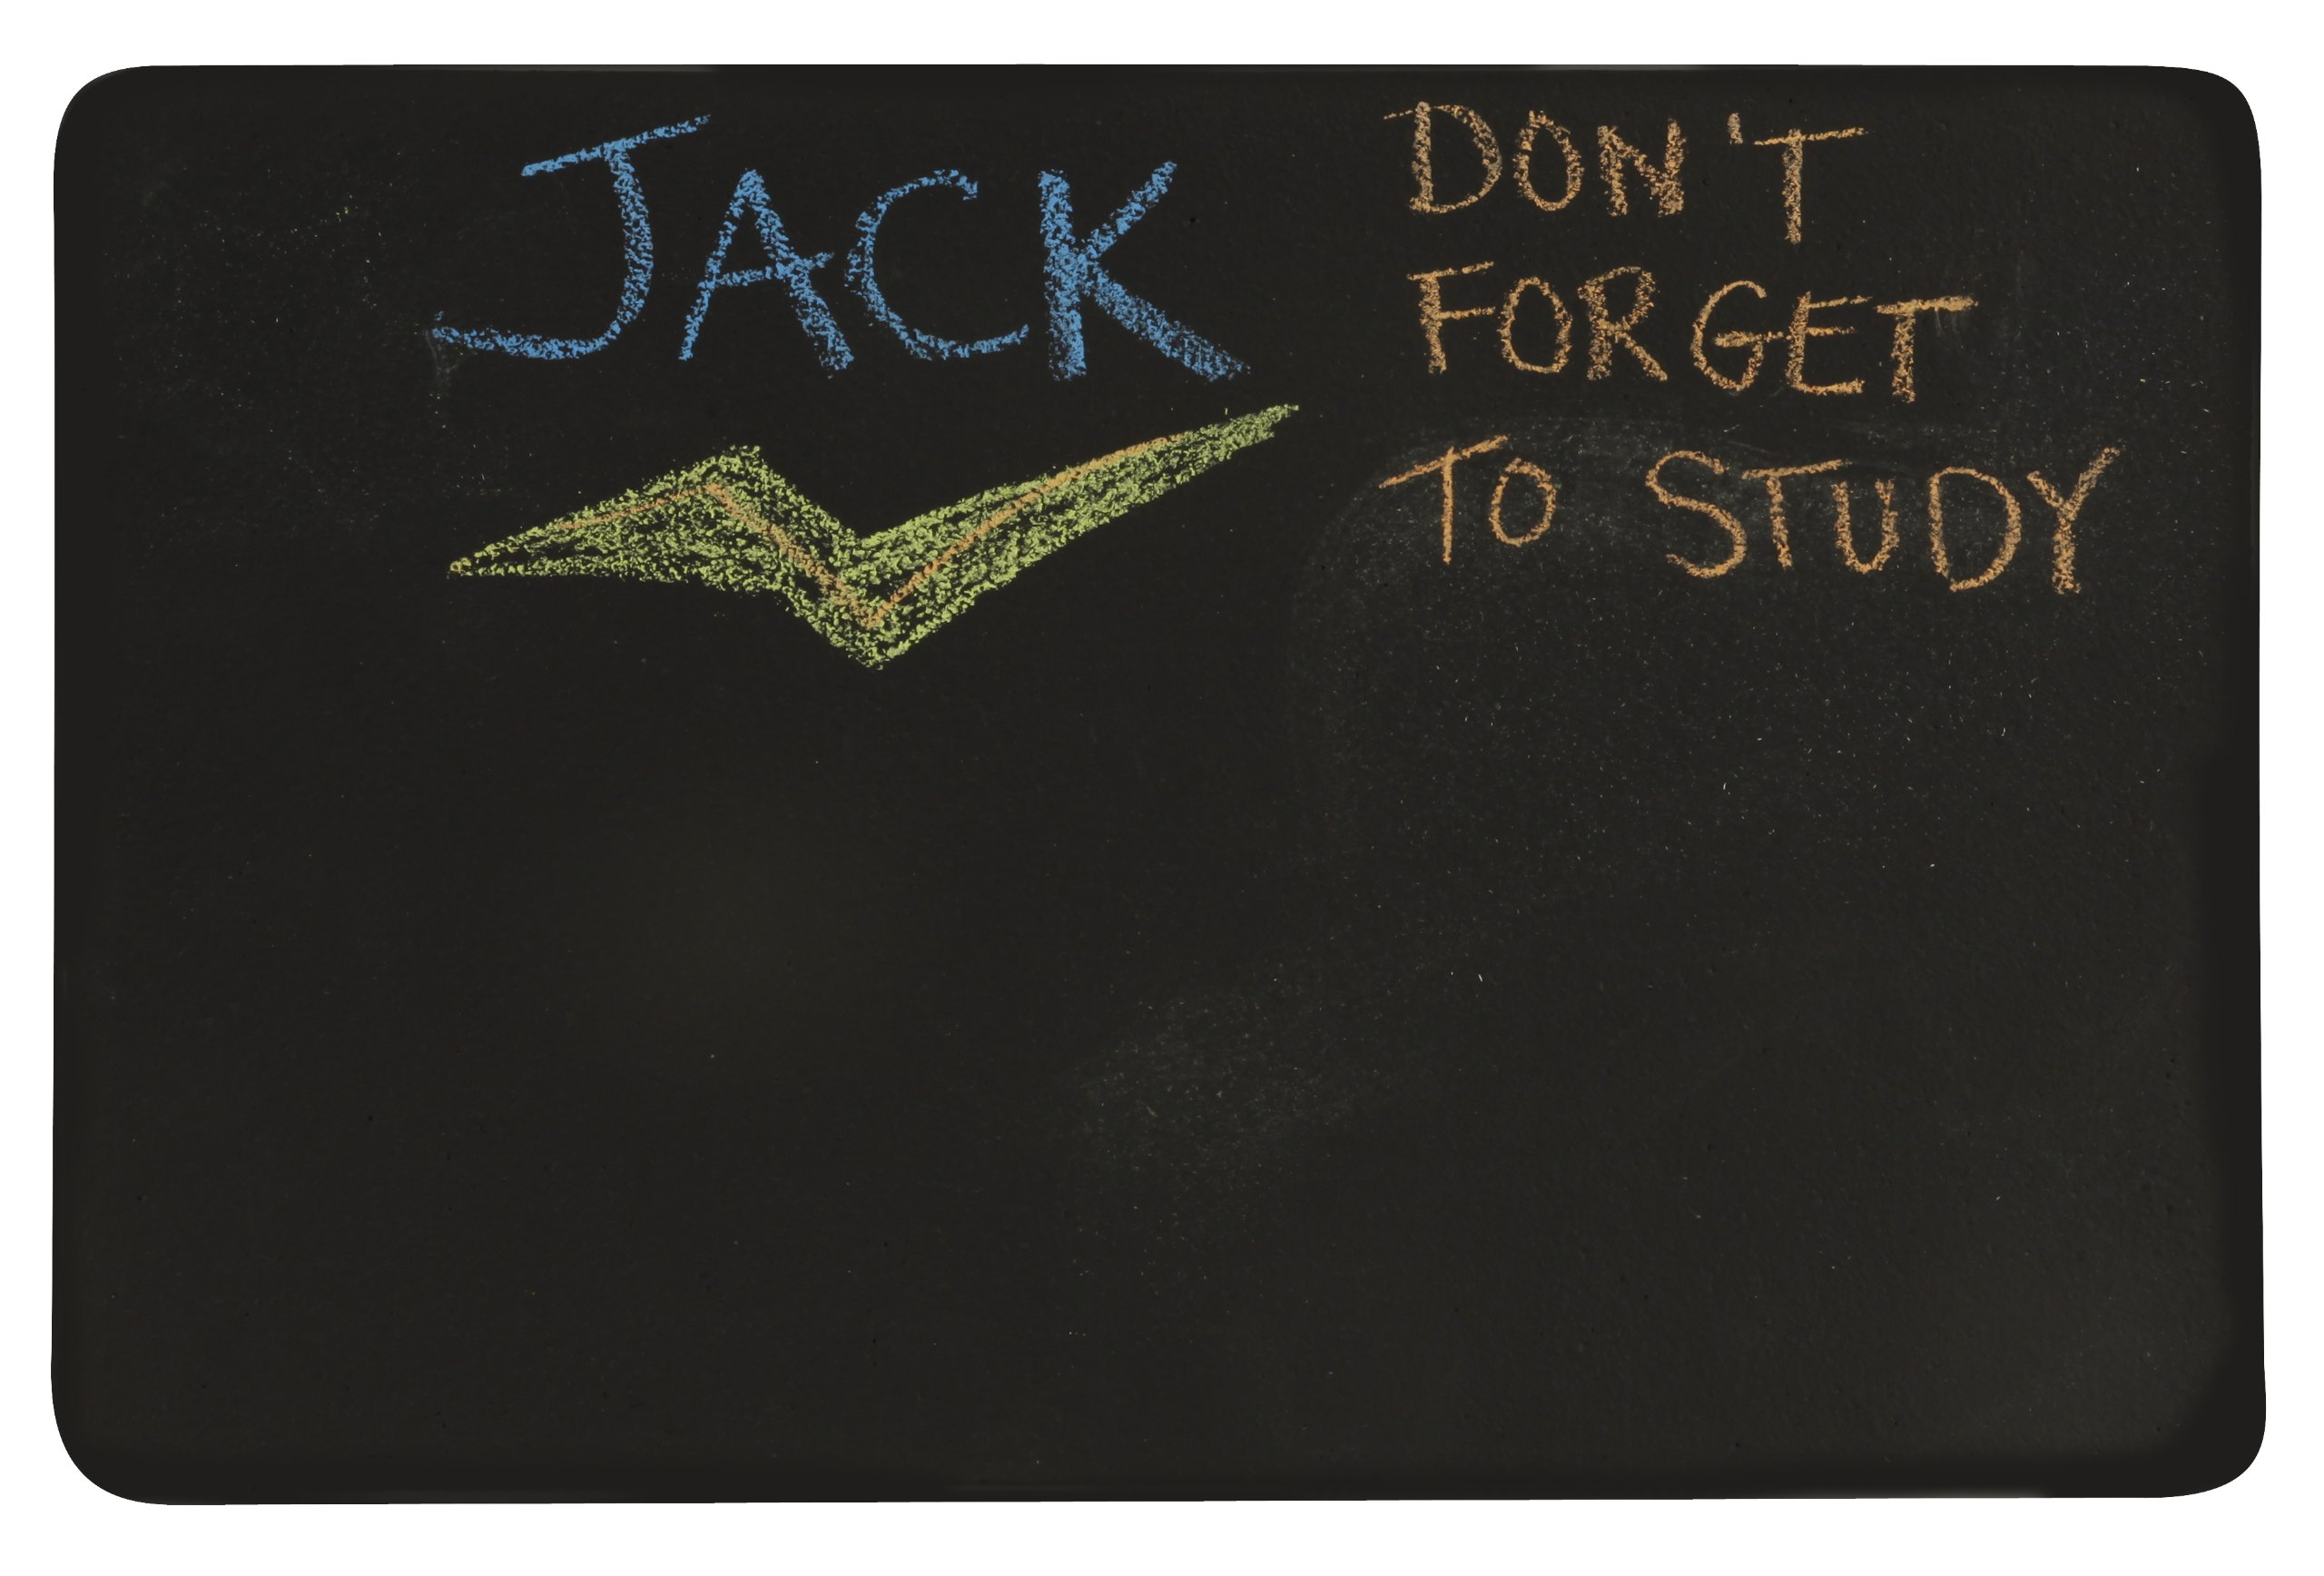 JACK
DON'T
FORGET
TO STUDY